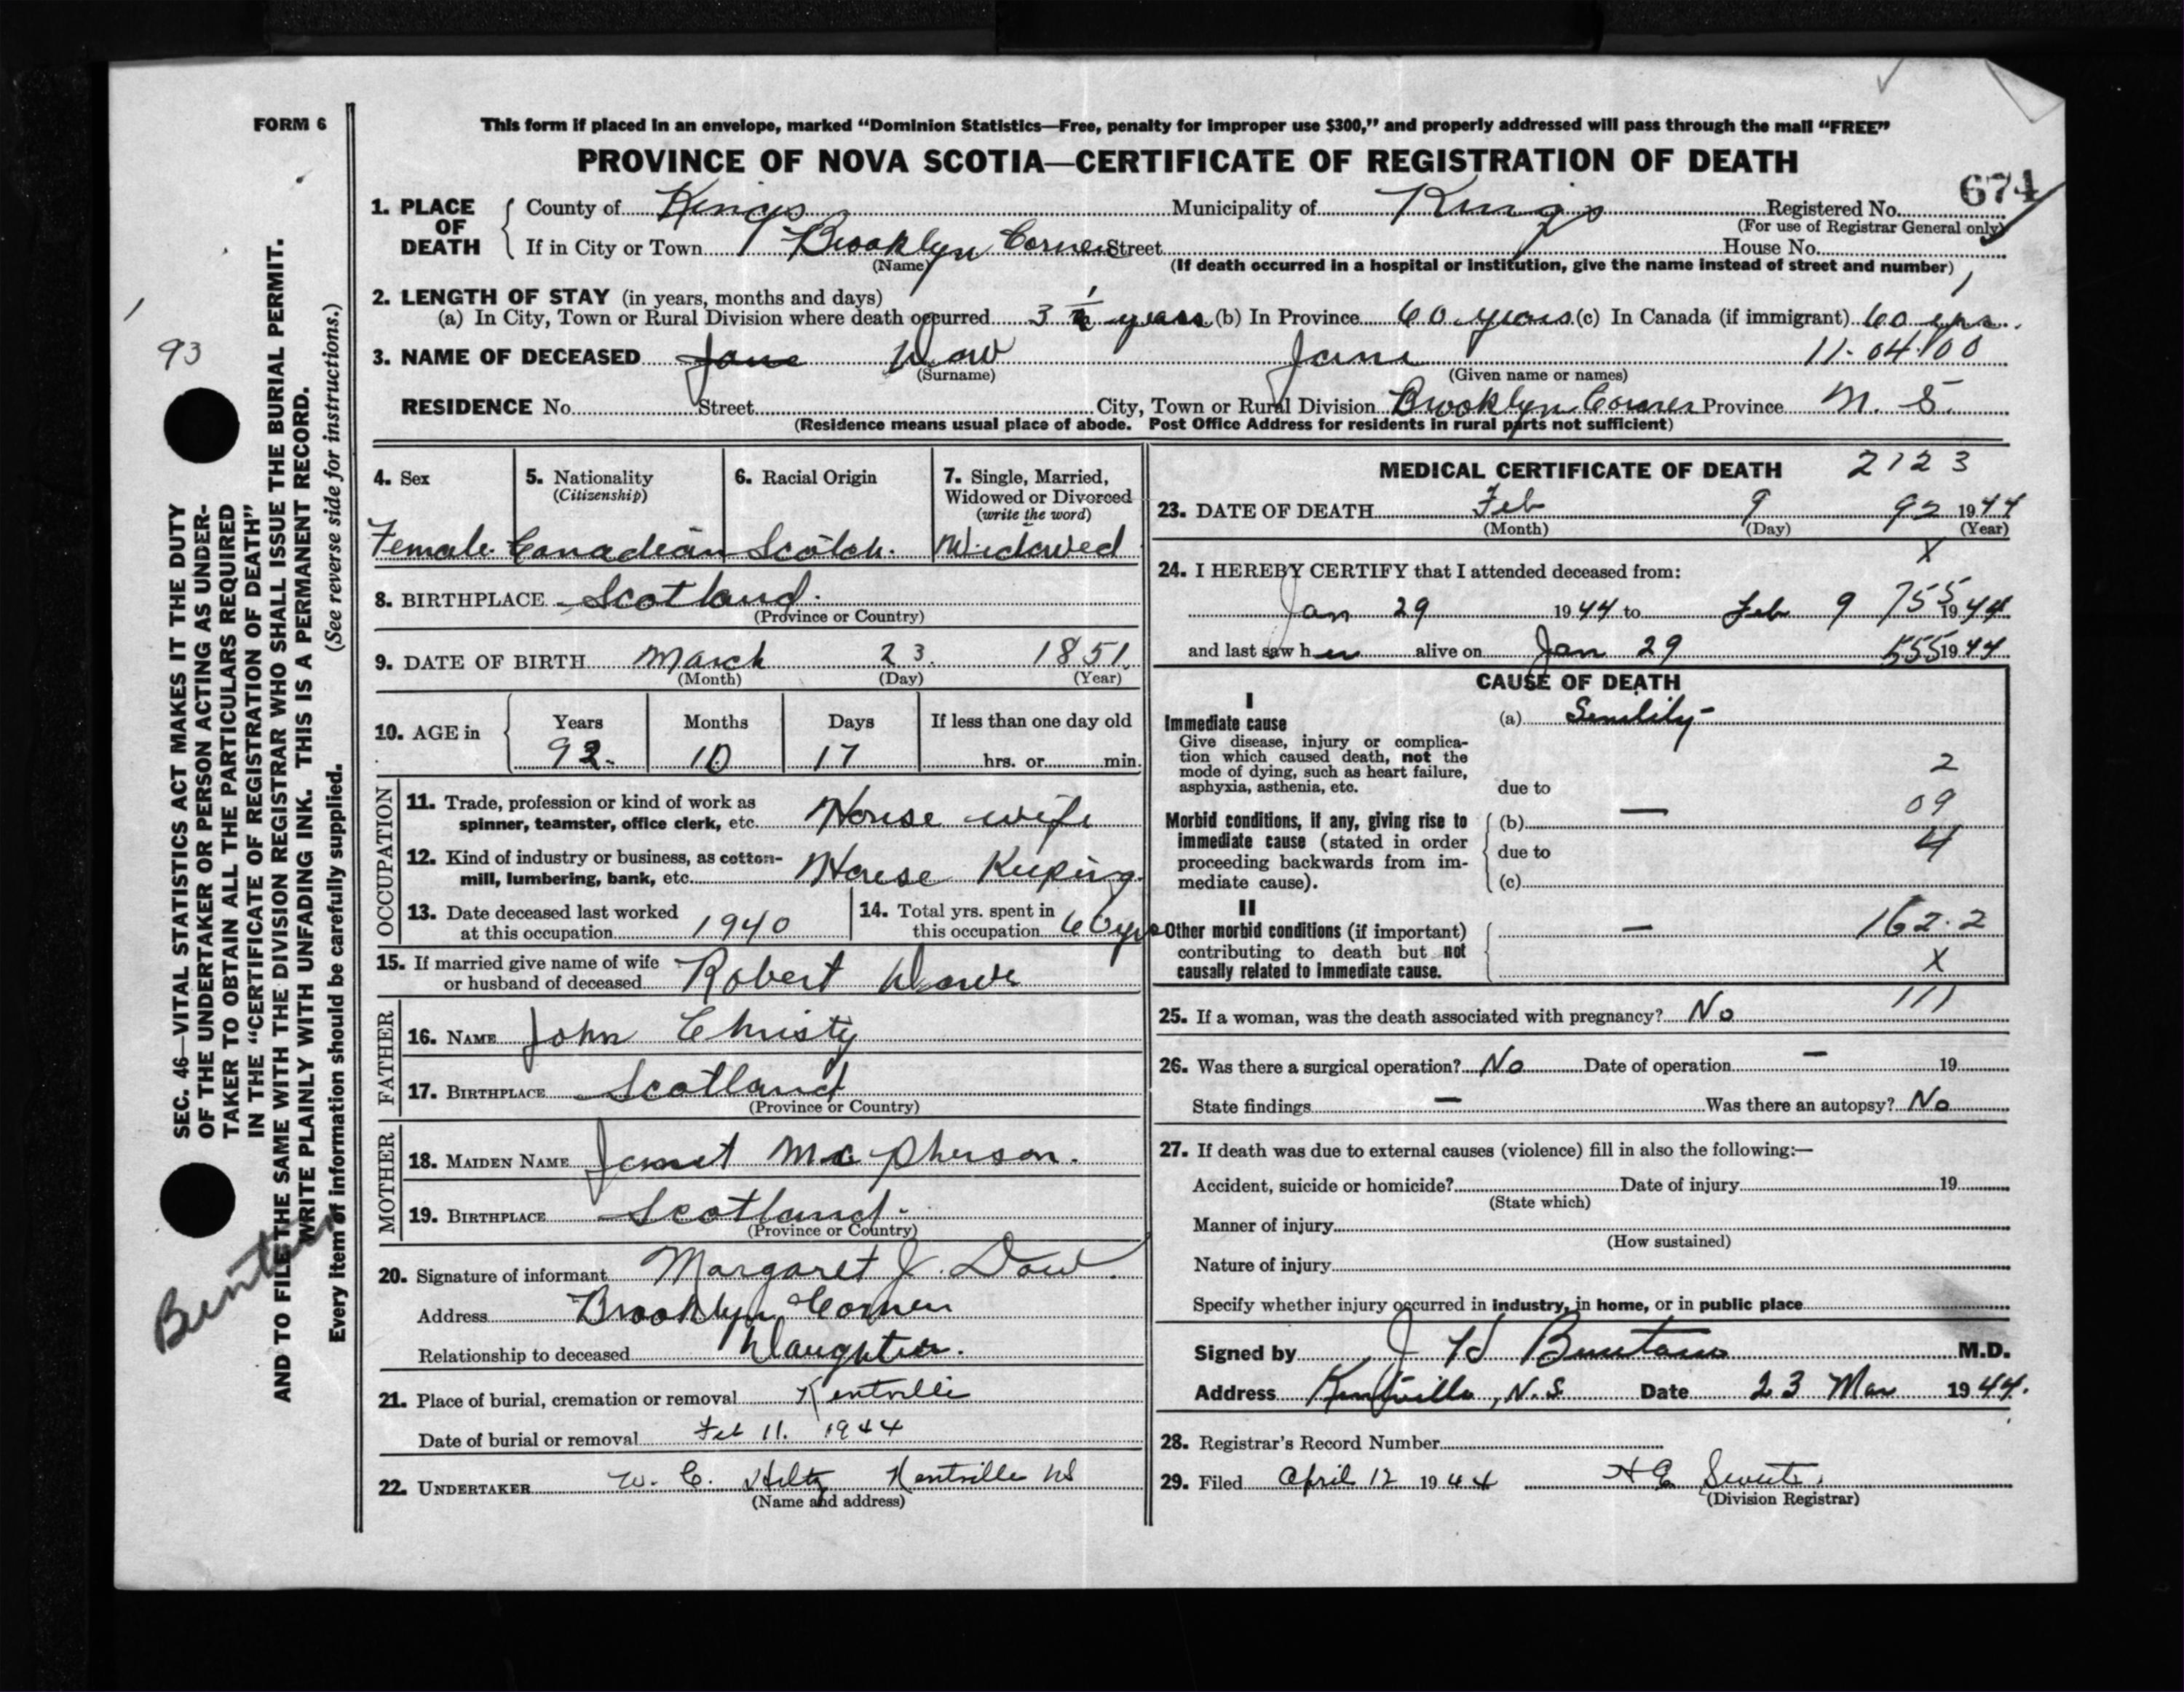 FORM 6
This form if placed in an envelope, marked “Dominion Statistics—Free, penalty for improper use $300,” and properly addressed will pass through the mail “FREE”
PROVINCE OF NOVA SCOTIA—CERTIFICATE OF REGISTRATION OF DEATH
674
1. PLACE OF DEATH County of Kings Municipality of Kings Registered No.
(For use of Registrar General only)
If in City or Town Brooklyn Corner Street House No.
(Name) (If death occurred in a hospital or institution, give the name instead of street and number)
2. LENGTH OF STAY (in years, months and days)
(a) In City, Town or Rural Division where death occurred 3 ½ years (b) In Province 60 years (c) In Canada (if immigrant) 60 yrs.
3. NAME OF DECEASED Jane Dow Jane 11-04-100
(Surname) (Given name or names)
RESIDENCE No. Street City, Town or Rural Division Brooklyn Corner Province N. S.
(Residence means usual place of abode. Post Office Address for residents in rural parts not sufficient)
4. Sex
Female
5. Nationality
(Citizenship)
Canadian
6. Racial Origin
Scotch.
7. Single, Married,
Widowed or Divorced
(write the word)
Widowed
8. BIRTHPLACE Scotland.
(Province or Country)
9. DATE OF BIRTH March 23. 1851.
(Month) (Day) (Year)
10. AGE in Years Months Days If less than one day old
92 10 17 hrs. or min.
OCCUPATION
11. Trade, profession or kind of work as
spinner, teamster, office clerk, etc. House wife
12. Kind of industry or business, as cotton-
mill, lumbering, bank, etc. House Keeping
13. Date deceased last worked
at this occupation 1940
14. Total yrs. spent in
this occupation 60 yrs
15. If married give name of wife
or husband of deceased Robert Dow
FATHER
16. NAME John Christy
17. BIRTHPLACE Scotland
(Province or Country)
MOTHER
18. MAIDEN NAME Janet McPherson.
19. BIRTHPLACE Scotland.
(Province or Country)
20. Signature of informant Margaret J. Dow.
Address Brooklyn Corner
Relationship to deceased Daughter.
21. Place of burial, cremation or removal Kentville
Date of burial or removal Feb 11. 1944
22. UNDERTAKER W. C. Hiltz Kentville NS
(Name and address)
MEDICAL CERTIFICATE OF DEATH 2123
23. DATE OF DEATH Feb 9 92 1944
(Month) (Day) (Year)
X
24. I HEREBY CERTIFY that I attended deceased from:
Jan 29 1944 to Feb 9 755 1944
and last saw her alive on Jan 29 555 1944
CAUSE OF DEATH
I
Immediate cause
Give disease, injury or complica-
tion which caused death, not the
mode of dying, such as heart failure,
asphyxia, asthenia, etc.
(a) Senility
2
due to
09
Morbid conditions, if any, giving rise to
immediate cause (stated in order
proceeding backwards from im-
mediate cause).
(b) —
due to 4
(c)
II
Other morbid conditions (if important)
contributing to death but not
causally related to immediate cause.
— 162.2
X
111
25. If a woman, was the death associated with pregnancy? No
26. Was there a surgical operation? No Date of operation — 19
State findings — Was there an autopsy? No
27. If death was due to external causes (violence) fill in also the following:—
Accident, suicide or homicide? Date of injury 19
(State which)
Manner of injury
(How sustained)
Nature of injury
Specify whether injury occurred in industry, in home, or in public place
Signed by J H M.D.
Address Kentville, N.S. Date 23 Mar 1944.
28. Registrar's Record Number
29. Filed April 12 1944 H E
(Division Registrar)
93
SEC. 46—VITAL STATISTICS ACT MAKES IT THE DUTY
OF THE UNDERTAKER OR PERSON ACTING AS UNDER-
TAKER TO OBTAIN ALL THE PARTICULARS REQUIRED
IN THE “CERTIFICATE OF REGISTRATION OF DEATH”
AND TO FILE THE SAME WITH THE DIVISION REGISTRAR WHO SHALL ISSUE THE BURIAL PERMIT.
WRITE PLAINLY WITH UNFADING INK. THIS IS A PERMANENT RECORD.
Every item of information should be carefully supplied. (See reverse side for instructions.)